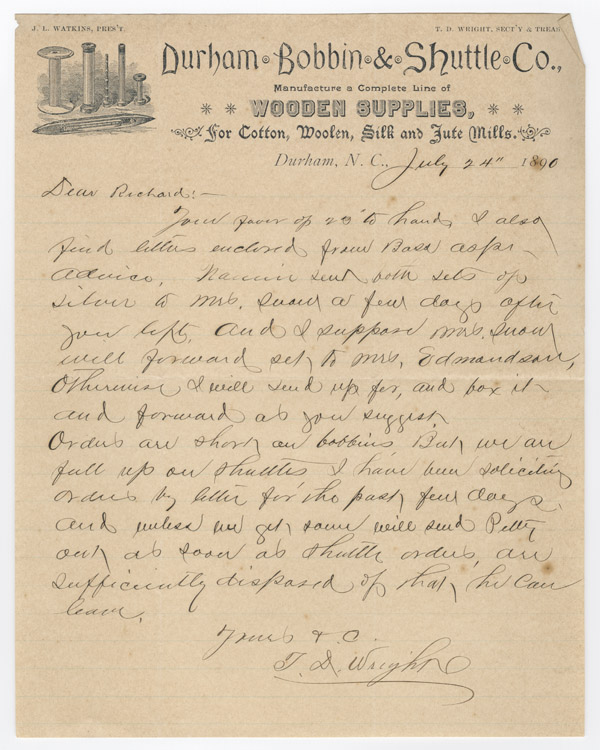 J. L. WATKINS, PRES'T.
T. D. WRIGHT, SECT'Y & TREAS.
Durham Bobbin & Shuttle Co.,
Manufacture a Complete Line of
WOODEN SUPPLIES,
For Cotton, Woolen, Silk and Jute Mills.
Durham, N. C., July 24" 1890
Dear Richard:—
Your favor of 23" to hand, I also
find letters enclosed from Bass as per
advice. sent both sets of
silver to Mrs. Snow a few days after
you left. And I suppose Mrs. Snow
will forward set to Mrs. Edmondson,
Otherwise I will send up for, and box it
and forward as you suggest.
Orders are short on bobbins. But we are
full up on Shuttles. I have been soliciting
orders by letter for the past few days.
And unless we get some will send Petty
out, as soon as shuttle orders, are
sufficiently disposed of that, he can
leave.
Yours & C.
T. D. Wright